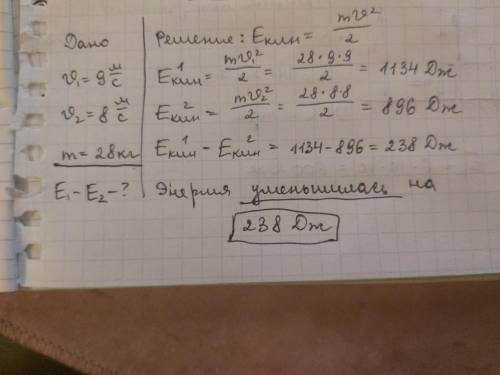 Дано
υ₁ = 9 м/с
υ₂ = 8 м/с
m = 28 кг
E₁ - E₂ - ?
Решение: Eкин = mυ²/2
E¹кин = mυ₁²/2 = 28·9·9/2 = 1134 Дж
E²кин = mυ₂²/2 = 28·8·8/2 = 896 Дж
E¹кин - E²кин = 1134 - 896 = 238 Дж
Энергия уменьшилась на
238 Дж